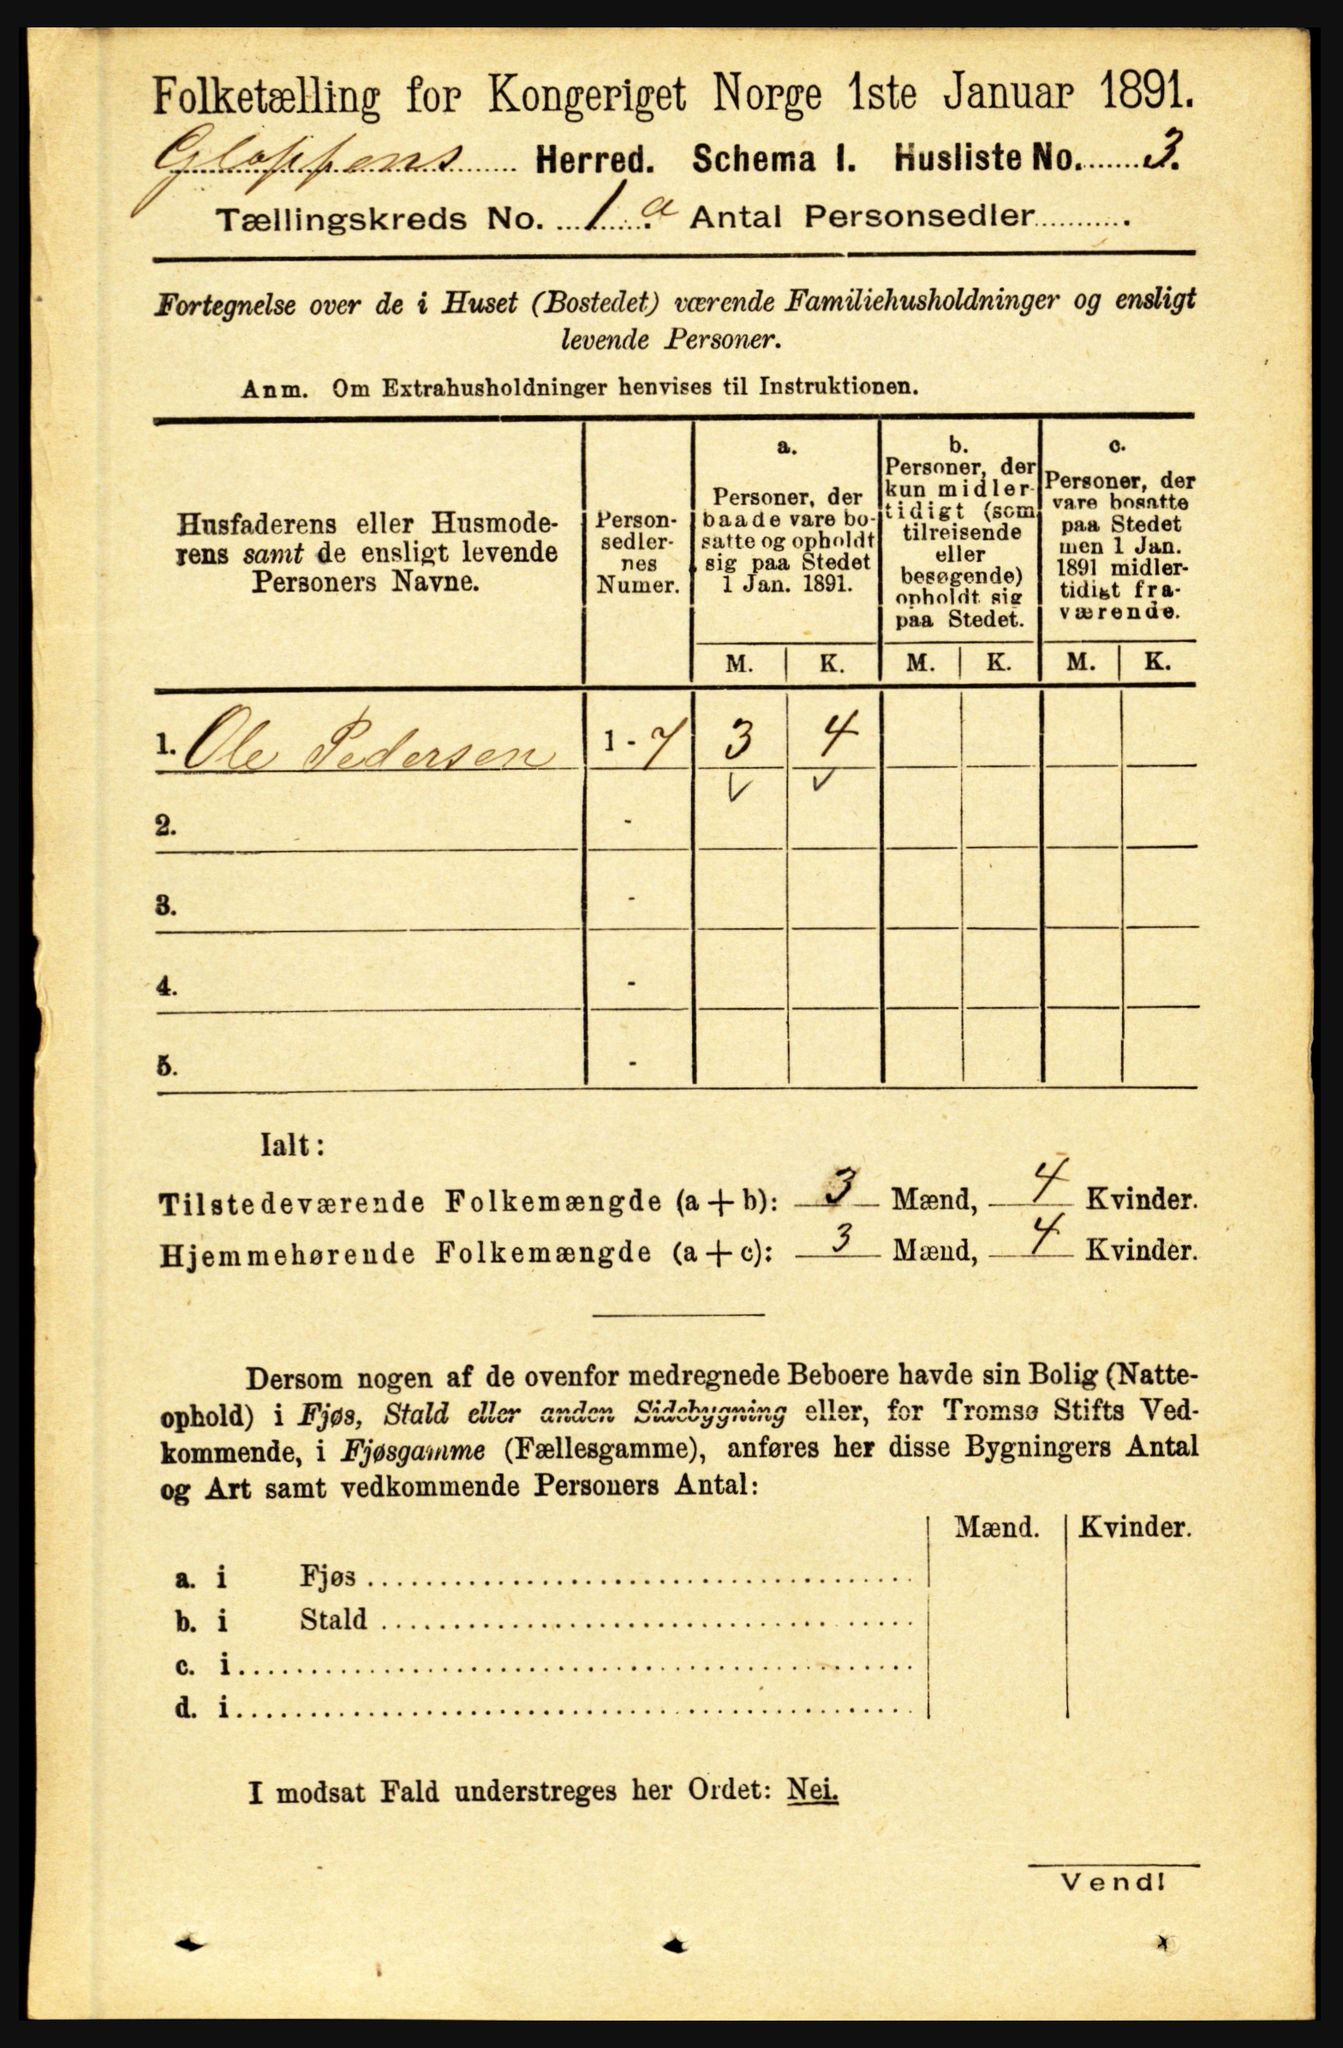 Folketælling for Kongeriget Norge 1ste Januar 1891.
Gloppens Herred. Schema I. Husliste No. 3.
Tællingskreds No. 1.a Antal Personsedler .
Fortegnelse over de i Huset (Bostedet) værende Familiehusholdninger og ensligt
levende Personer.
Anm. Om Extrahusholdninger henvises til Instruktionen.
Husfaderens eller Husmode-
rens samt de ensligt levende
Personers Navne.
Person-
sedler-
nes
Numer.
a.
Personer, der
baade vare bo-
satte og opholdt
sig paa Stedet
1 Jan. 1891.
b.
Personer, der
kun midler-
tidigt (som
tilreisende
eller
besøgende)
opholdt sig
paa Stedet.
c.
Personer, der
vare bosatte
paa Stedet
men 1 Jan.
1891 midler-
tidigt fra-
værende.
M. K. M. K. M. K.
1. Ole Pedersen 1 - 7 3 4
2. -
3. -
4. -
5. -
Ialt:
Tilstedeværende Folkemængde (a+b): 3 Mænd, 4 Kvinder.
Hjemmehørende Folkemængde (a+c): 3 Mænd, 4 Kvinder.
Dersom nogen af de ovenfor medregnede Beboere havde sin Bolig (Natte-
ophold) i Fjøs, Stald eller anden Sidebygning eller, for Tromsø Stifts Ved-
kommende, i Fjøsgamme (Fællesgamme), anføres her disse Bygningers Antal
og Art samt vedkommende Personers Antal:
Mænd. Kvinder.
a. i Fjøs
b. i Stald
c. i
d. i
I modsat Fald understreges her Ordet: Nei.
Vend!